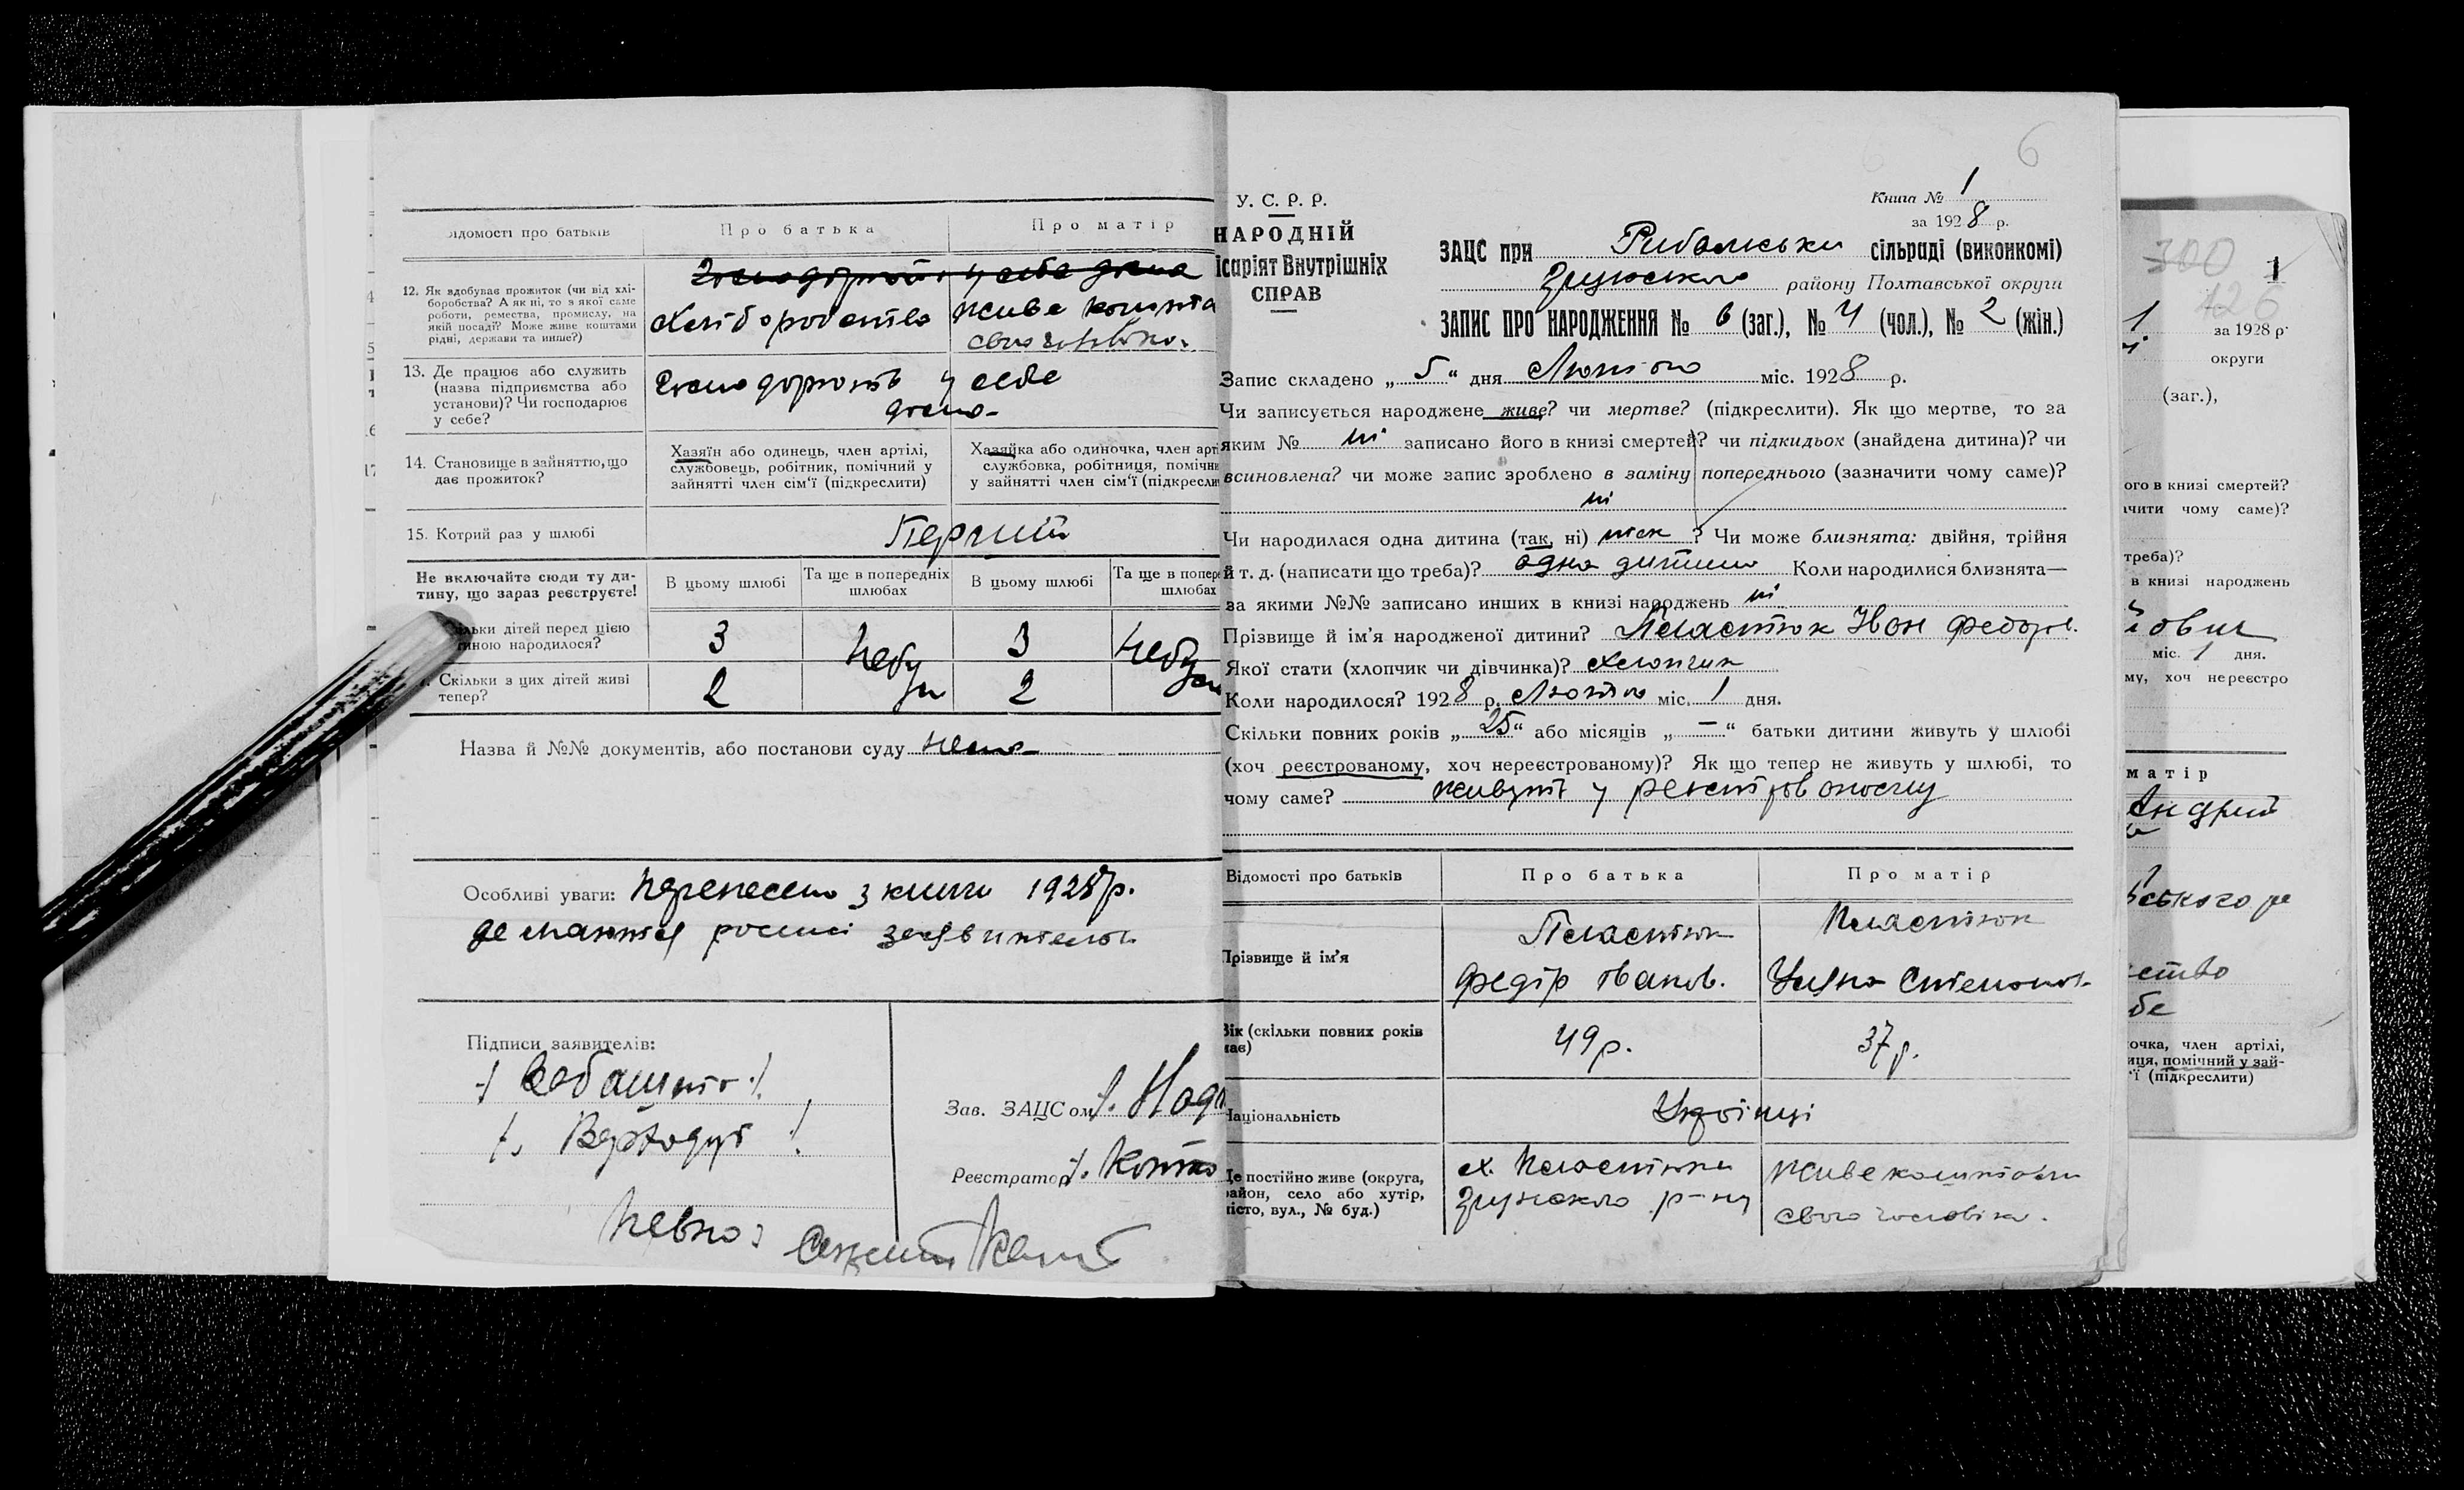 ідомості про батьків
Про батька
Про матір
12. Як здобуває прожиток (чи від хлі-
боробства? А як ні, то з якої саме
роботи, ремества, промислу, на
якій посаді? Може живе коштами
рідні, держави та инше?)
Хліборобство
живе кошта
свого чоловіка.
13. Де працює або служить
(назва підприємства або
установи)? Чи господарює
у себе?
у себе
дома
14. Становище в зайняттю, що
дає прожиток?
Хазяїн або одинець, член артілі,
службовець, робітник, помічний у
зайнятті член сім'ї (підкреслити)
Хазяйка або одиночка, член арт
службовка, робітниця, помічн
у зайнятті член сім'ї (підкресли
15. Котрий раз у шлюбі
Перший
Не включайте сюди ту ди-
тину, що зараз реєструєте!
В цьому шлюбі
Та ще в попередніх
шлюбах
В цьому шлюбі
Та ще в попере
шлюбах
льки дітей перед цією
тиною народилося?
3
небу
3
небу
Скільки з цих дітей живі
тепер?
2
ли
2
Назва й №№ документів, або постанови суду нема
Особливі уваги: Перенесено з книги 1928 р.
де маються росписі заявителів
Підписи заявителів:
Зав. ЗАЦСом
Реєстратор
6
У. С. Р. Р.
НАРОДНІЙ
ісаріят Внутрішніх
СПРАВ
Книга № 1
за 1928 р.
ЗАЦС при Рибальські сільраді (виконкомі)
району Полтавської округи
ЗАПИС ПРО НАРОДЖЕННЯ № 6 (заг.), № 4 (чол.), № 2 (жін.)
Запис складено „5“ дня Лютого міс. 1928 р.
Чи записується народжене живе? чи мертве? (підкреслити). Як що мертве, то за
яким № ні записано його в книзі смертей? чи підкидьок (знайдена дитина)? чи
всиновлена? чи може запис зроблено в заміну попереднього (зазначити чому саме)?
ні
Чи народилася одна дитина (так, ні) так ? Чи може близнята: двійня, трійня
й т. д. (написати що треба)? одна дитина Коли народилися близнята—
за якими №№ записано инших в книзі народжень ні
Прізвище й ім'я народженої дитини? Пластюк Іван Федоров.
Якої стати (хлопчик чи дівчинка)? хлопчик
Коли народилося? 1928 р. Лютого міс. 1 дня.
Скільки повних років „25“ або місяців „—“ батьки дитини живуть у шлюбі
(хоч реєстрованому, хоч нереєстрованому)? Як що тепер не живуть у шлюбі, то
чому саме? живуть у реєстрованому
Відомості про батьків
Про батька
Про матір
Прізвище й ім'я
Пластюк
Федір Іванов.
Пластюк
Степанов.
Вік (скільки повних років
має)
49 р.
37 р.
Національність
Українці
Де постійно живе (округа,
район, село або хутір,
місто, вул., № буд.)
х. Пластюки
р-ну
живе коштами
свого чоловіка.
300
126
1
1
за 1928 р.
округи
(заг.),
ого в книзі смертей?
чити чому саме)?
треба)?
в книзі народжень
міс. 1 дня.
му, хоч нереєстро
матір
ського ра
ство
бе
очка, член артілі,
иця, помічний у зай-
'ї (підкреслити)